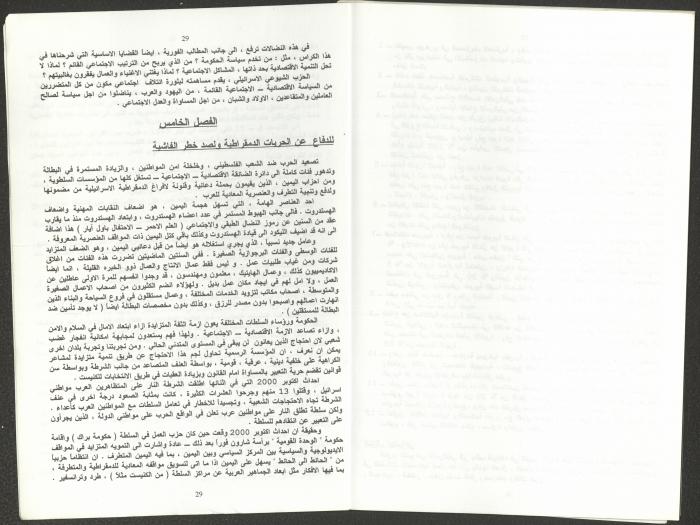 29
في هذه النضالات ترفع ، الى جانب المطالب الفورية ، ايضاً القضايا الاساسية التي شرحناها في
هذا الكراس ، مثل : من تخدم سياسة الحكومة ؟ من الذي يربح من الترتيب الاجتماعي القائم ؟ لماذا لا
تحل التنمية الاقتصادية بحد ذاتها ، المشاكل الاجتماعية ؟ لماذا يغتني الاغنياء والعمال يفقرون بغالبيتهم ؟
الحزب الشيوعي الاسرائيلي ، يقدم مساهمته لبلورة ائتلاف اجتماعي مكون من كل المتضررين
من السياسة الاقتصادية – الاجتماعية القائمة ، من اليهود والعرب ، يناضلوا من اجل سياسة لصالح
العاملين والمتقاعدين ، الاولاد والشبان ، من اجل المساواة والعدل الاجتماعي .
الفصل الخامس
للدفاع عن الحريات الدمقراطية ولصد خطر الفاشية
تصعيد الحرب ضد الشعب الفلسطيني ، وخلخلة امن المواطنين ، والزيادة المستمرة في البطالة
وتدهور فئات كاملة الى دائرة الضائقة الاقتصادية – الاجتماعية – تستغل كلها من المؤسسات السلطوية ،
ومن احزاب اليمين ، الذين يقيمون بحملة دعائية وقانونة لافراغ الدمقراطية الاسرائيلية من مضمونها
ولدفع وتنمية التطرف والعنصرية المعادية للعرب .
احد العناصر الهامة ، التي تسهل هجمة اليمين ، هو اضعاف النقابات المهنية واضعاف
الهستدروت . فالى جانب الهبوط المستمر في عدد اعضاء الهستدروت ، وابتعاد الهستدروت منذ ما يقارب
عقد من السنين عن رموز النضال الطبقي والاجتماعي ( العلم الاحمر – الاحتفال باول أيار ) هذا اضافة
الى انه قد اضيف الليكود الى قيادة الهستدروت وكذلك باقي كتل اليمين ذات المواقف العنصرية المعروفة .
وعامل جديد نسبياً ، الذي يجري استغلاله هو ايضاً من قبل دعائيي اليمين ، وهو الضعف المتزايد
للفئات الوسطى والفئات البرجوازية الصغيرة . ففي السنتين الماضيتين تضررت هذه الفئات من اغلاق
شركات ومن غياب طلبيات عمل . و ليس فقط عمال الانتاج والعمال ذوو الخبرة القليلة ، انما ايضاً
الاكاديميون كذلك ، وعمال الهايتيك ، معلمون ومهندسون ، قد وجدوا انفسهم للمرة الاولى عاطلين عن
العمل ، ولا امل لهم في ايجاد مكان عمل بديل . ولهؤلاء انضم الكثيرون من اصحاب الاعمال الصغيرة
والمتوسطة ، اصحاب مكاتب لتزويد الخدمات المختلفة ، وعمال مستقلون في فروع السياحة والبناء الذين
انهارت اعمالهم واصبحوا بدون مصدر للرزق ، وكذلك بدون مخصصات البطالة ايضاً ( لا يوجد تأمين ضد
البطالة للمستقلين ) .
الحكومة ورؤساء السلطات المختلفة يعون ازمة الثقة المتزايدة ازاء ابتعاد الامال في السلام والامن
، وازاء تصاعد الازمة الاقتصادية – الاجتماعية . ولهذا فهم يستعدون لمجابهة امكانية انفجار غضب
شعبي لان احتجاج الذين يعانون لن يبقى في المستوى المتدني الحالي . ومن تجربتنا وتجربة بلدان اخرى
يمكن ان نعرف ، ان المؤسسة الرسمية تحاول لجم هذا الاحتجاج عن طريق تنمية متزايدة لمشاعر
الكراهية على خلفية دينية ، عرقية ، قومية ، بواسطة العنف المتصاعد من جانب الشرطة وبواسطة سن
قوانين تقضم حرية التعبير بالمساواة امام القانون وبزيادة العقبات في طريق الانتخابات للكنيست .
احداث اكتوبر 2000 التي في اثنائها اطلقت الشرطة النار على المتظاهرين العرب مواطني
اسرائيل ، وقتلوا 13 منهم وجرحوا العشرات الكثيرة . كانت بمثابة الصعود درجة اخرى في عنف
الشرطة تجاه الاحتجاجات الشعبية ، وتجسيداً للاخطار في تعامل السلطات مع المواطنين العرب كأعداء .
ولكن سلطة تطلق النار على مواطنين عرب تعلن في الواقع الحرب على مواطني الدولة ، الذين يجرأون
على التعبير عن انتقادهم للسلطة .
وحقيقة ان احداث اكتوبر 2000 وقعت حين كان حزب العمل في السلطة ( حكومة براك ) واقامة
حكومة " الوحدة القومية " برأسة شارون فوراً بعد ذلك – عادة واشارت الى التمويه المتزايد في المواقف
الايديولوجية والسياسية بين المركز السياسي وبين اليمين ، بما فيه اليمين المتطرف . ان انتظاماً حزبياً
من " الحائط الى الحائط " يسهل على اليمين اذا ما اتى لتسويق مواقفه المعادية للدمقراطية والمتطرفة ،
بما فيها الافكار مثل ابعاد الجماهير العربية عن مراكز السلطة ( من الكنيست مثلاً ) ، طرد وترانسفير .
29